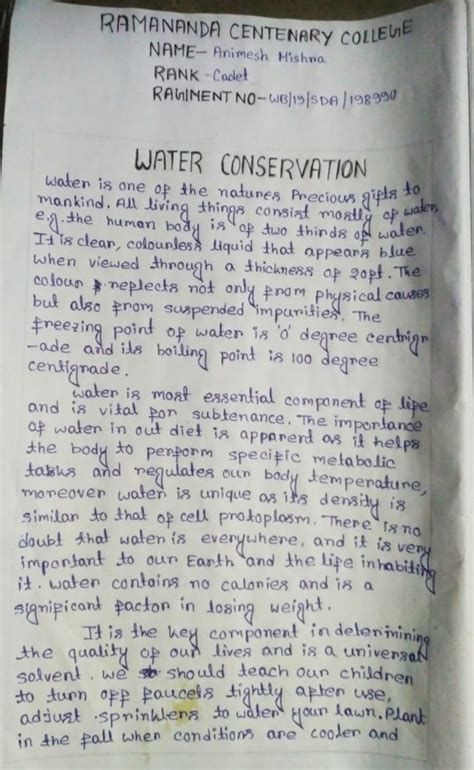 RAMANANDA CENTENARY COLLEGE
NAME- Animesh Mishra
RANK - Cadet
RAGIMENT NO- WB/19/SDA/198990
WATER CONSERVATION
water is one of the natures Precious gifts to
mankind. All living things consist mostly of water,
e.g. the human body is of two thirds of water.
It is clear, colourless liquid that appears blue
when viewed through a thickness of 20ft. The
colour reflects not only from physical causes
but also from suspended impurities. The
freezing point of water is '0' degree centrigr
-ade and its boiling point is 100 degree
centigrade.
water is most essential component of life
and is vital for subtenance. The importance
of water in out diet is apparent as it helps
the body to perform specific metabolic
tasks and regulates our body temperature,
moreover water is unique as its density is
similar to that of cell protoplasm. There is no
doubt that water is everywhere, and it is very
important to our Earth and the life inhabiting
it. water contains no calories and is a
significant factor in losing weight.
It is the key component in determining
the quality of our lives and is a universal
solvent. we should teach our children
to turn off faucels tightly after use,
adjust sprinklers to water your lawn. Plant
in the fall when conditions are cooler and